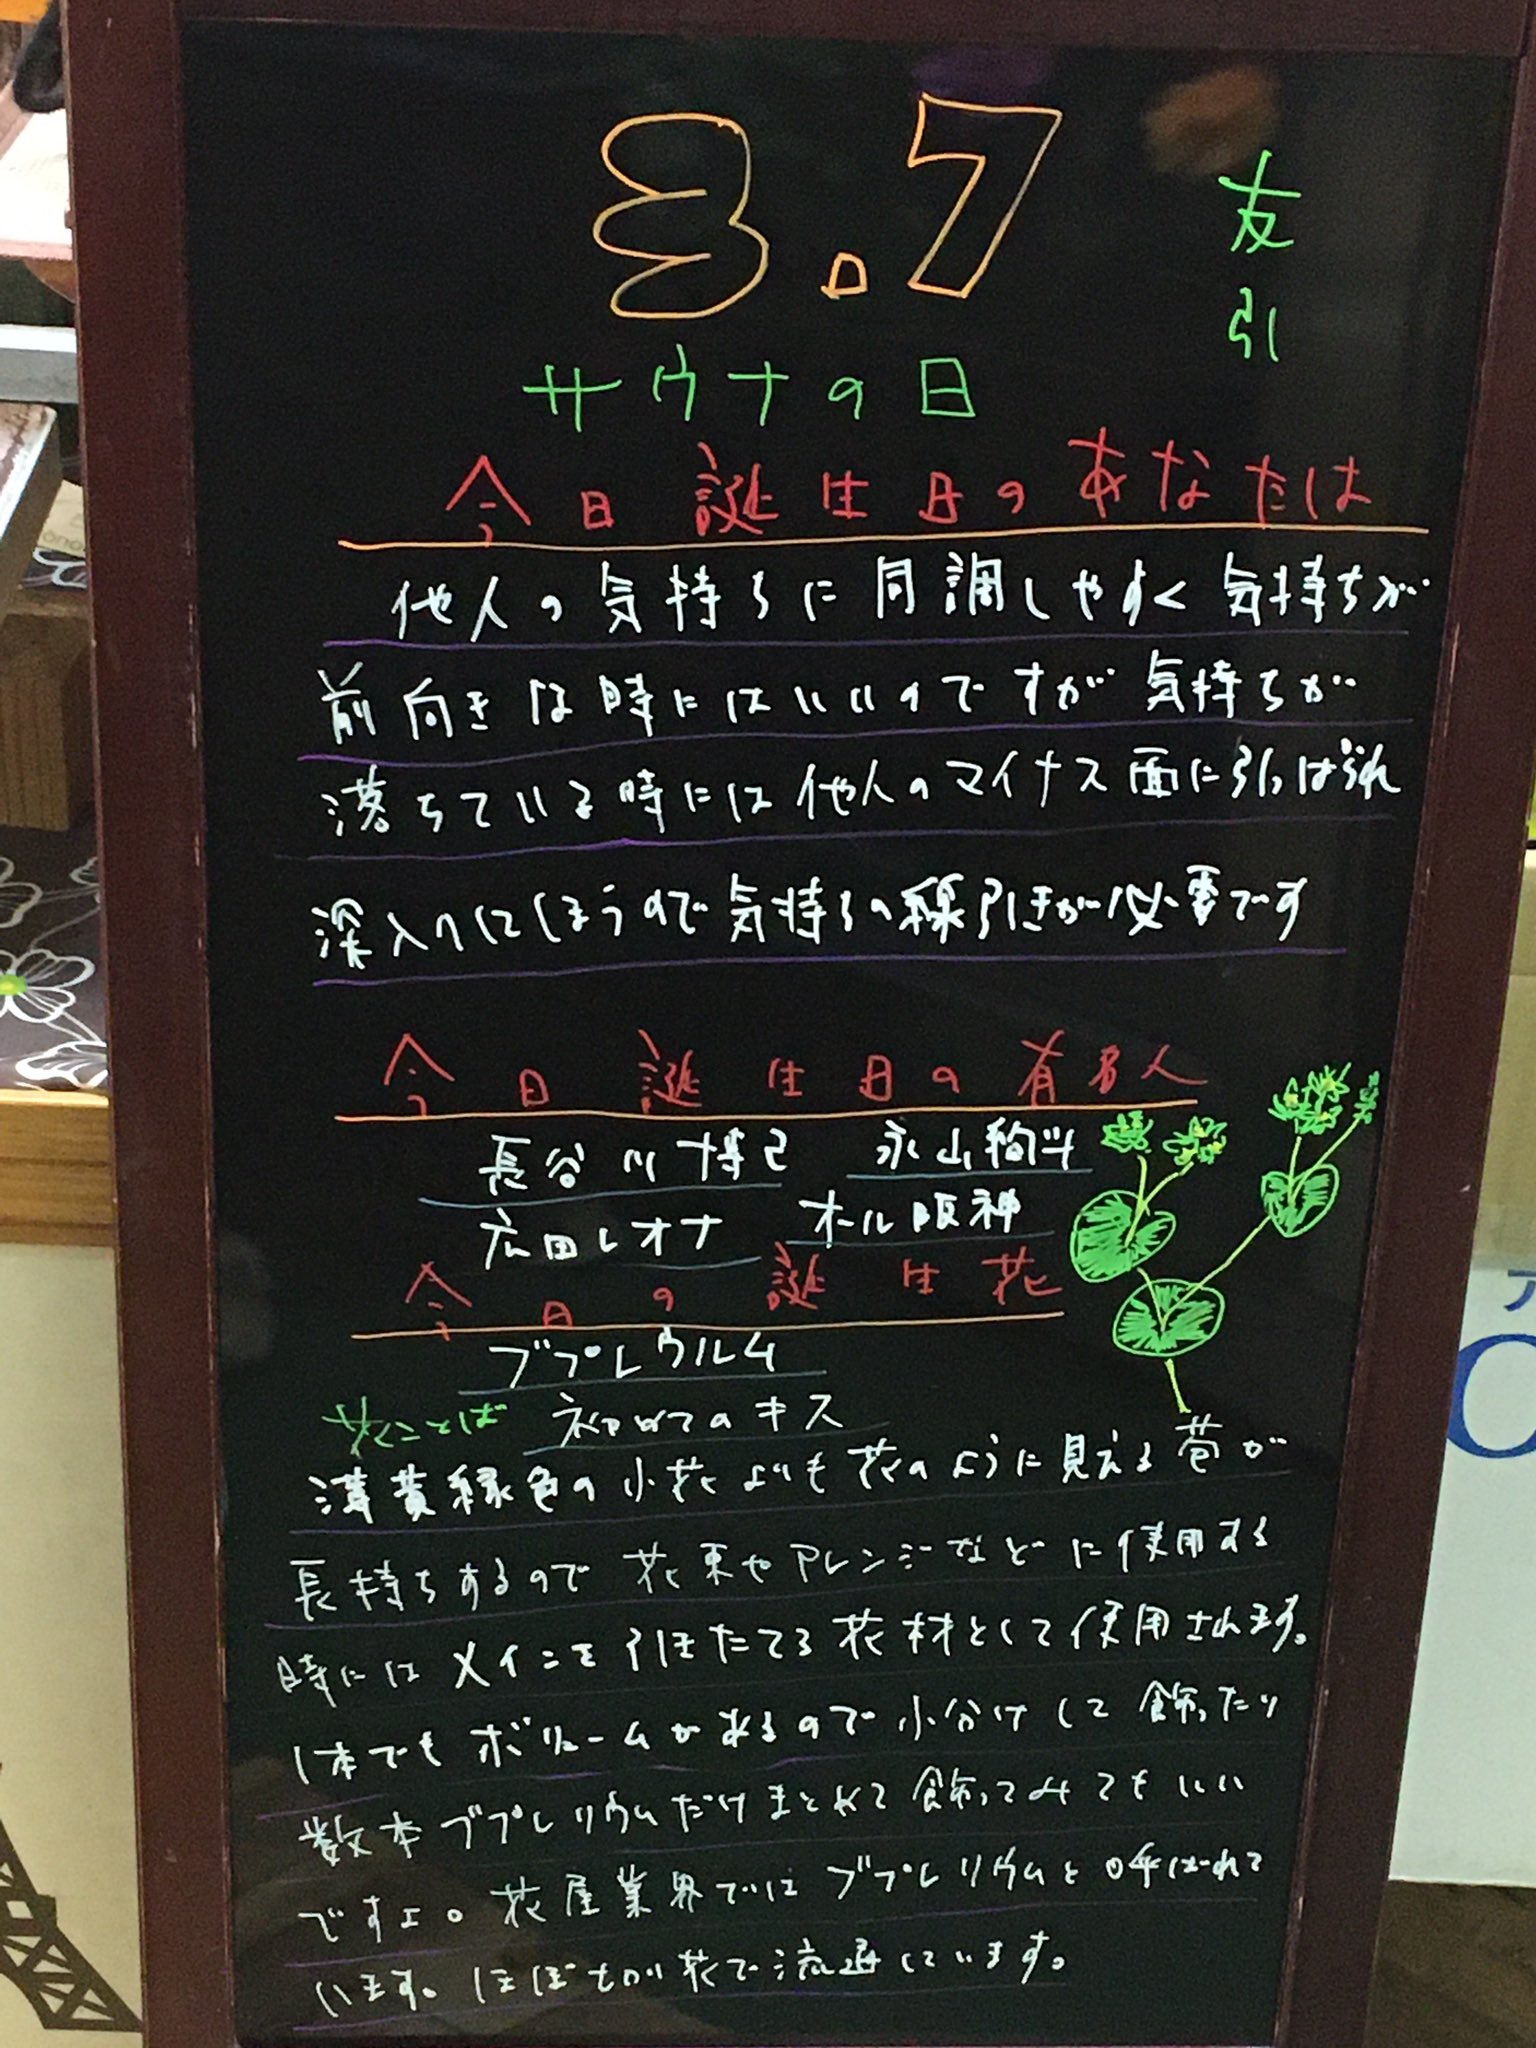 3.7
友引
サウナの日
今日誕生日のあなたは
他人の気持ちに同調しやすく気持ちが
前向きな時にはいいのですが気持ちが
落ちている時には他人のマイナス面に引っぱられ
深入りにしまうので気持ちの線引きが必要です
今日誕生日の有名人
長谷川博己 永山絢斗
広田レオナ オール阪神
今日の誕生花
ブプレウルム
花ことば 初めてのキス
薄黄緑色の小花よりも花のように見える苞が
長持ちするので花束やアレンジなどに使用する
時にはメインを引きたてる花材として使用されます。
1本でもボリュームがあるので小分けして飾ったり
数本ブプレリウムだけまとめて飾ってみてもいい
ですよ。花屋業界ではブプレリウムと呼ばれて
います。ほぼ切り花で流通しています。